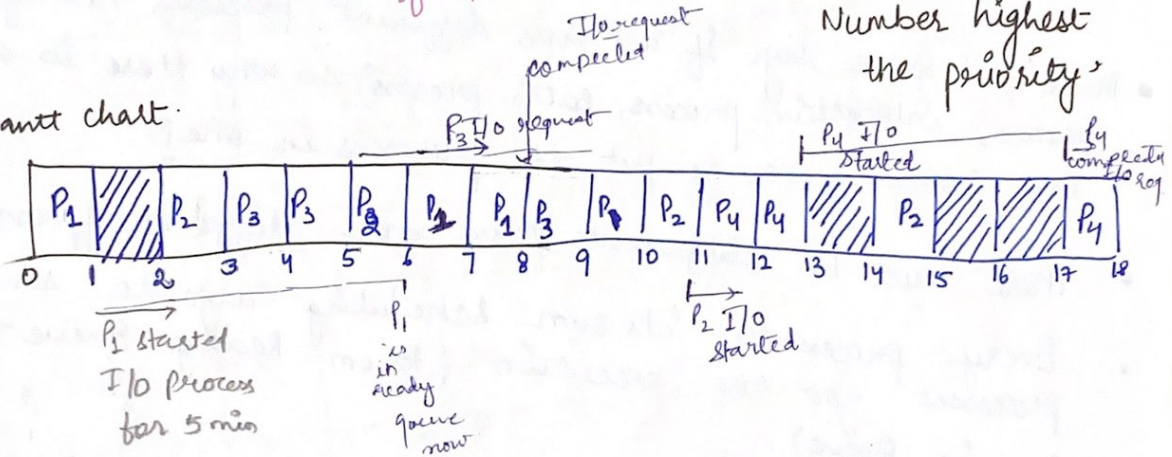 I/o request
compeleted
Number highest
the priority.
antt chart.
P3 I/o request
P4 I/O
started
P4
completed
I/o req
P1 P2 P3 P3 P2 P1 P1 P3 P1 P2 P4 P4 P2 P4
0 1 2 3 4 5 6 7 8 9 10 11 12 13 14 15 16 17 18
P1 started
I/O process
for 5 min
P1
is
in
ready
queue
now
P2 I/O
started